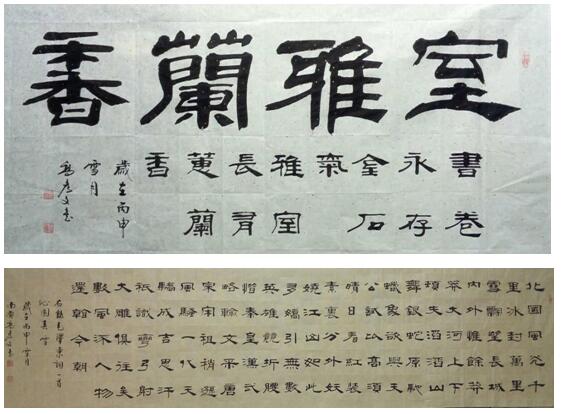 室雅蘭香
書卷
永存
金石
氣
雅室
長有
蕙蘭
香
歲在丙申
雪月
北國風光千
里冰封萬里
雪飄望長城
內外惟餘莽
莽大河上下
頓失滔滔山
舞銀蛇原馳
蠟象欲與天
公試比高須
晴日看紅裝
素裹分外妖
嬈江山如此
多嬌引無數
英雄競折腰
惜秦皇漢武
略輸文采唐
宗宋祖稍遜
風騷一代天
驕成吉思汗
祇識彎弓射
大雕俱往矣
數風流人物
還看今朝
右錄毛澤東詞一首
沁園春雪
歲在丙申雪月